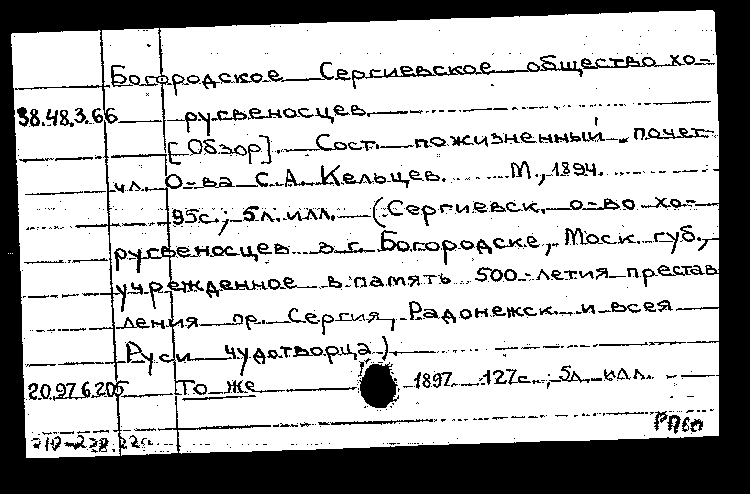 Богородское Сергиевское общество хо-
38.48.3.66 ругвеносцев.
[Обзор]. Сост. пожизненный почет.
чл. О-ва С.А. Кельцев. М., 1894.
95с.; 5л. илл. (Сергиевск. о-во хо-
ругвеносцев в г. Богородске, Моск. губ.,
учрежденное в память 500-летия престав
ления пр. Сергия, Радонежск. и всея
Руси чудотворца).
20.97.6.205 То же 1897 127с.; 5л. илл.